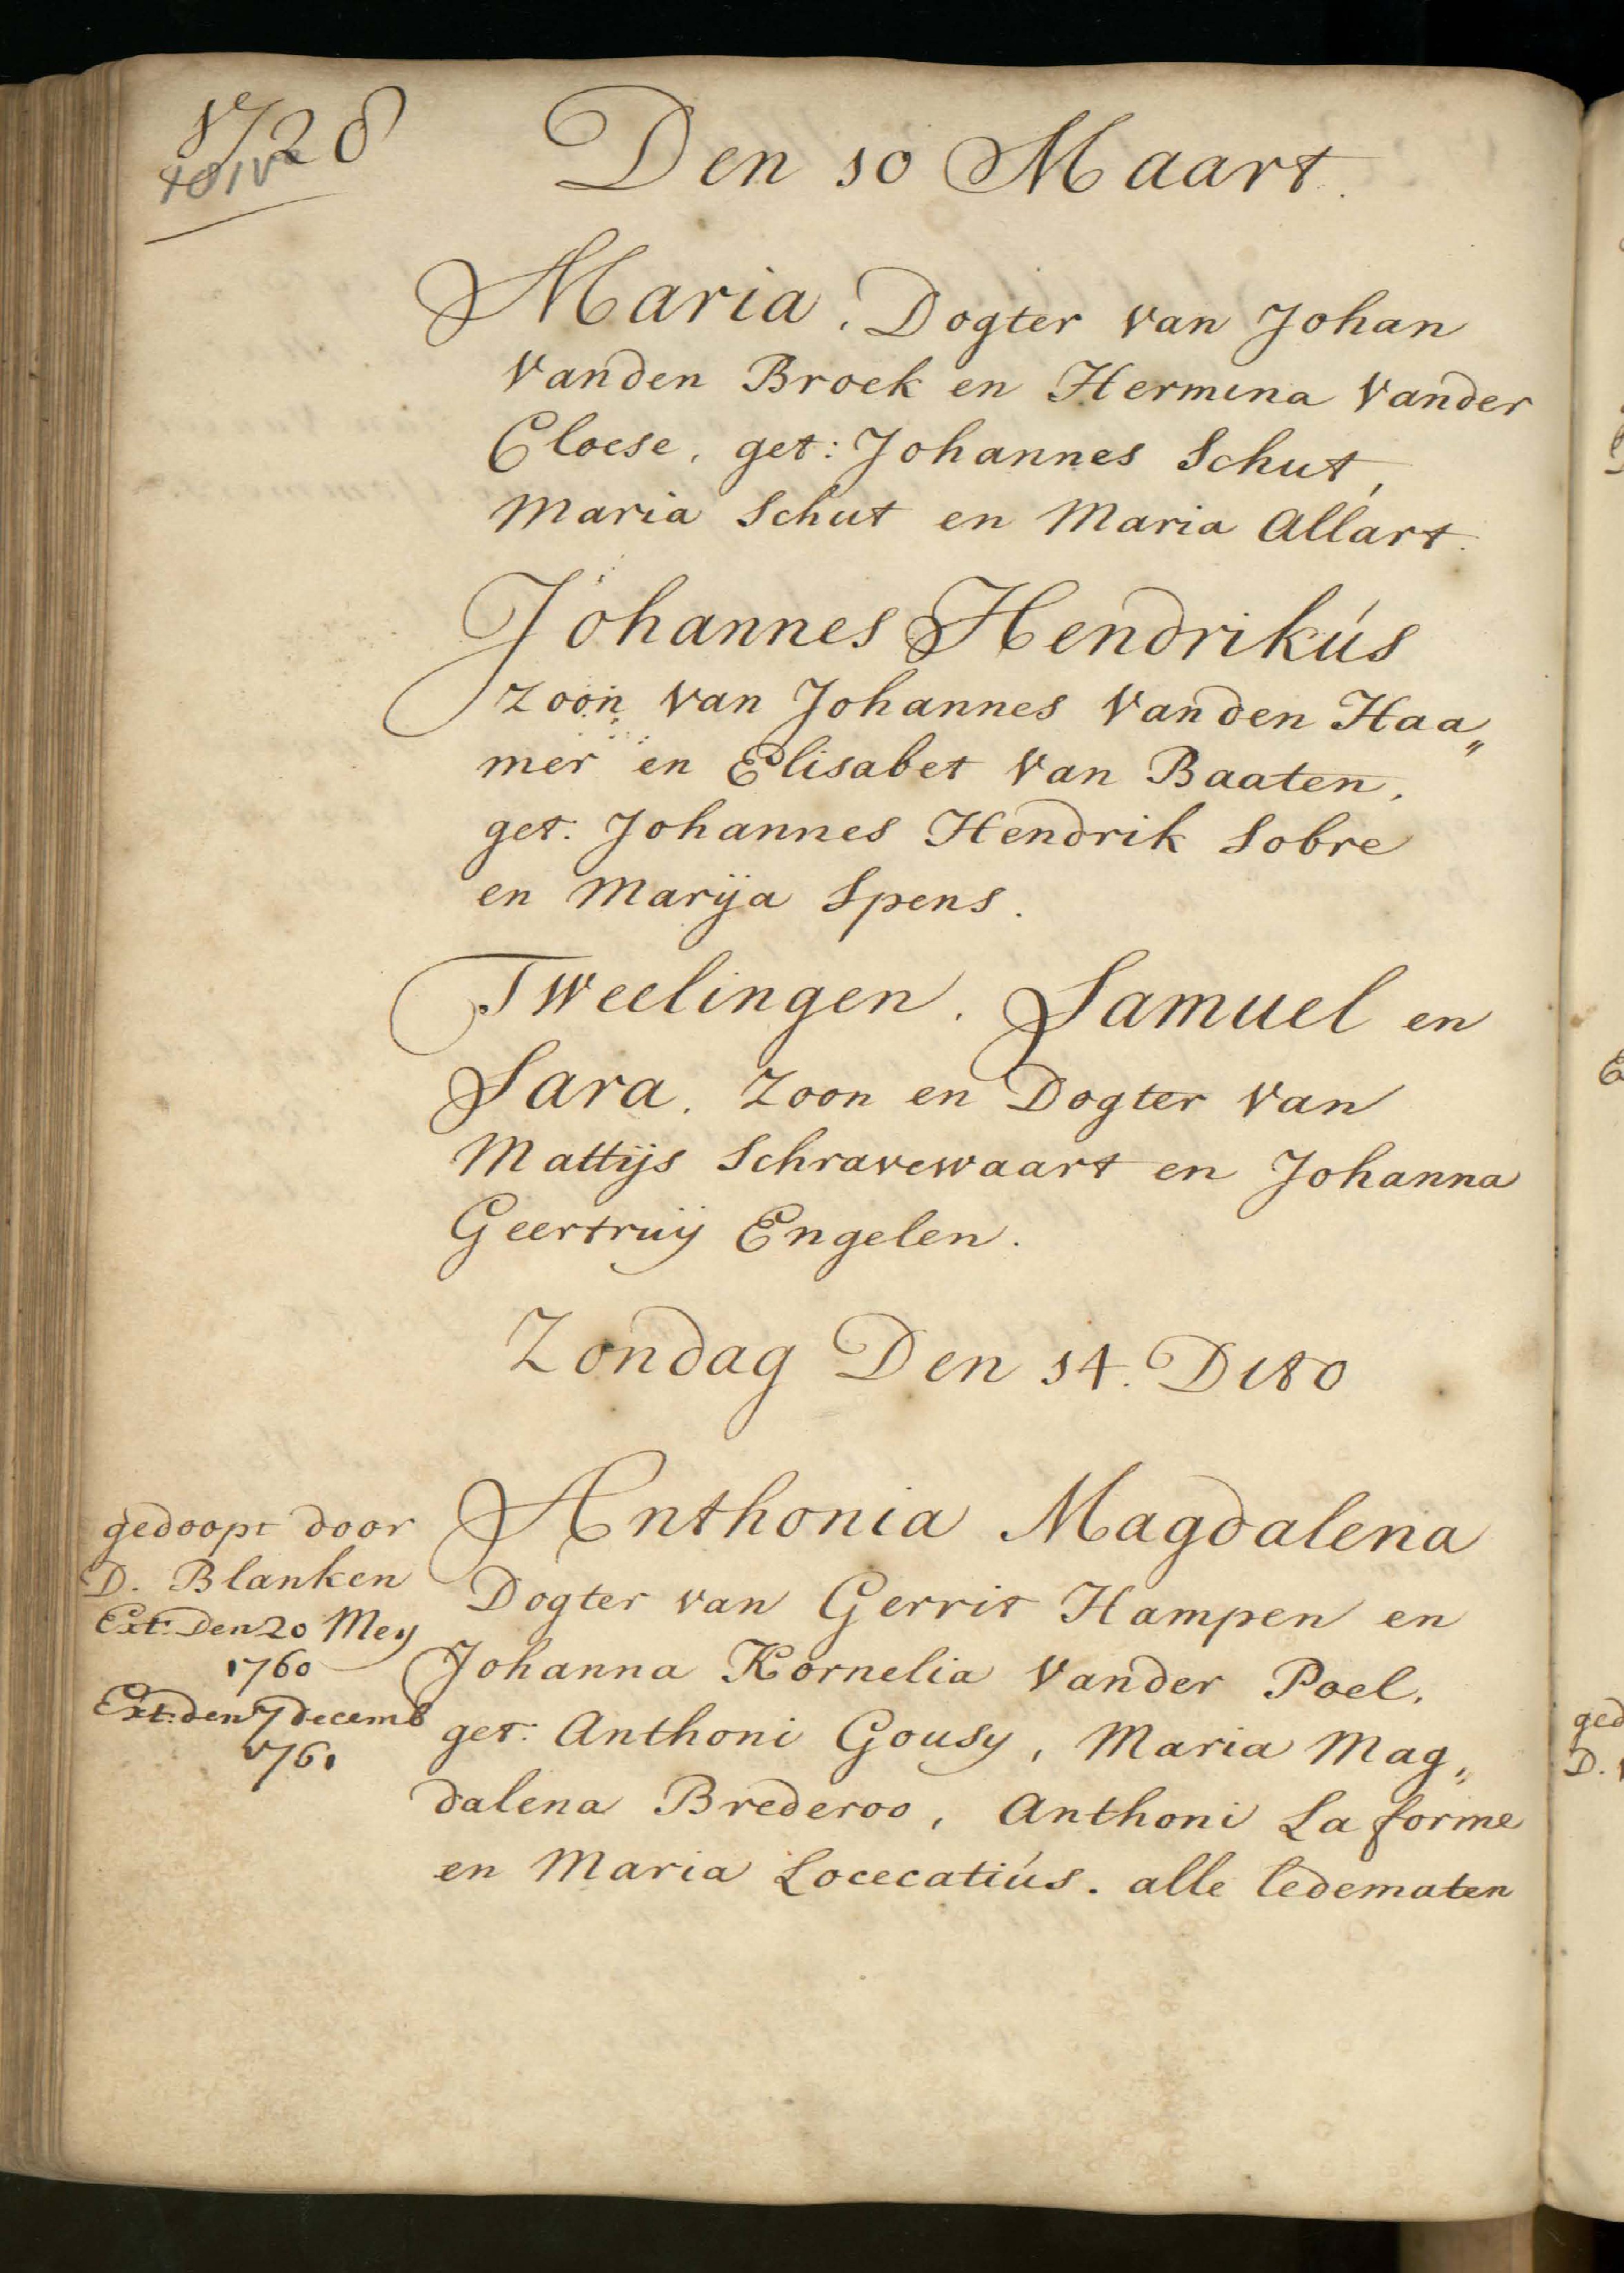 1728
401vo
Den 10 Maart.
Maria, Dogter van Johan
vanden Broek en Hermina vander
Cloese, get: Johannes Schut,
Maria Schut en Maria Allart.
Johannes Hendrikús
zoon van Johannes vanden Haa„
mer en Elisabet van Baaten,
get: Johannes Hendrik Sobre
en Marÿa Spens.
Tweelingen, Samuel en
Sara, Zoon en Dogter van
Mattijs Schravewaart en Johanna
Geertruÿ Engelen.
Zondag Den 14. Dito
gedoopt door
D. Blanken
Ext: Den 20 Meÿ
1760
Ext: den 7 decemb
1761
Anthonia Magdalena
Dogter van Gerrit Hampen en
Johanna Kornelia vander Poel,
get: Anthoni Gousy, Maria Mag„
dalena Brederoo, Anthoni La forme
en Maria Locecatiús. alle ledematen
ged
D.